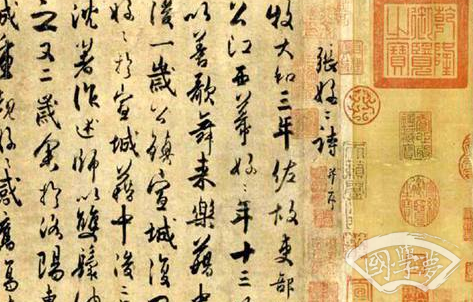 乾隆御覽之寶
張好〻詩 并序
牧大和三年佐故吏部
公江西幕好〻年十三
以善歌舞來樂籍中
後一歲公鎮宣城復
好〻於宣城籍中後二
沈著作述師以雙鬟納
之又二歲余於洛陽東
城重覩好〻感舊傷
國學夢